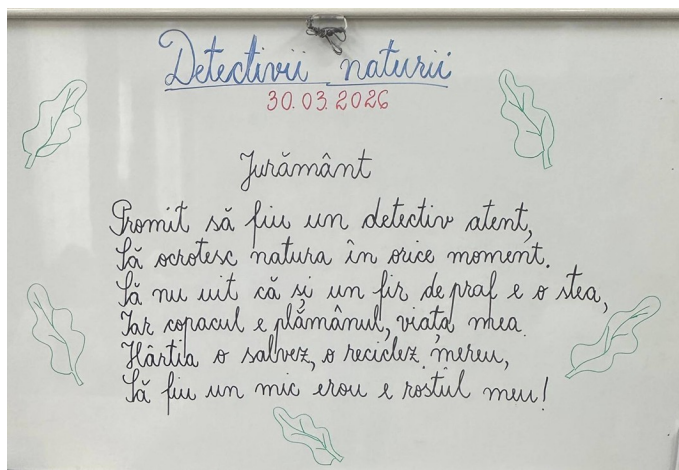 Detectivii naturii
30.03.2026
Jurământ
Promit să fiu un detectiv atent,
Să ocrotesc natura în orice moment.
Să nu uit că și un fir de praf e o stea,
Iar copacul e plămânul, viața mea.
Hârtia o salvez, o reciclez mereu,
Să fiu un mic erou e rostul meu!